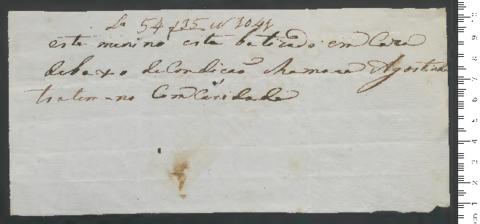 Lo 54 f 35 nº 2041
este minino está batizado em Caza
debaxo de Condicaõ Chamase Agostinho
tratem-no Com Caridade